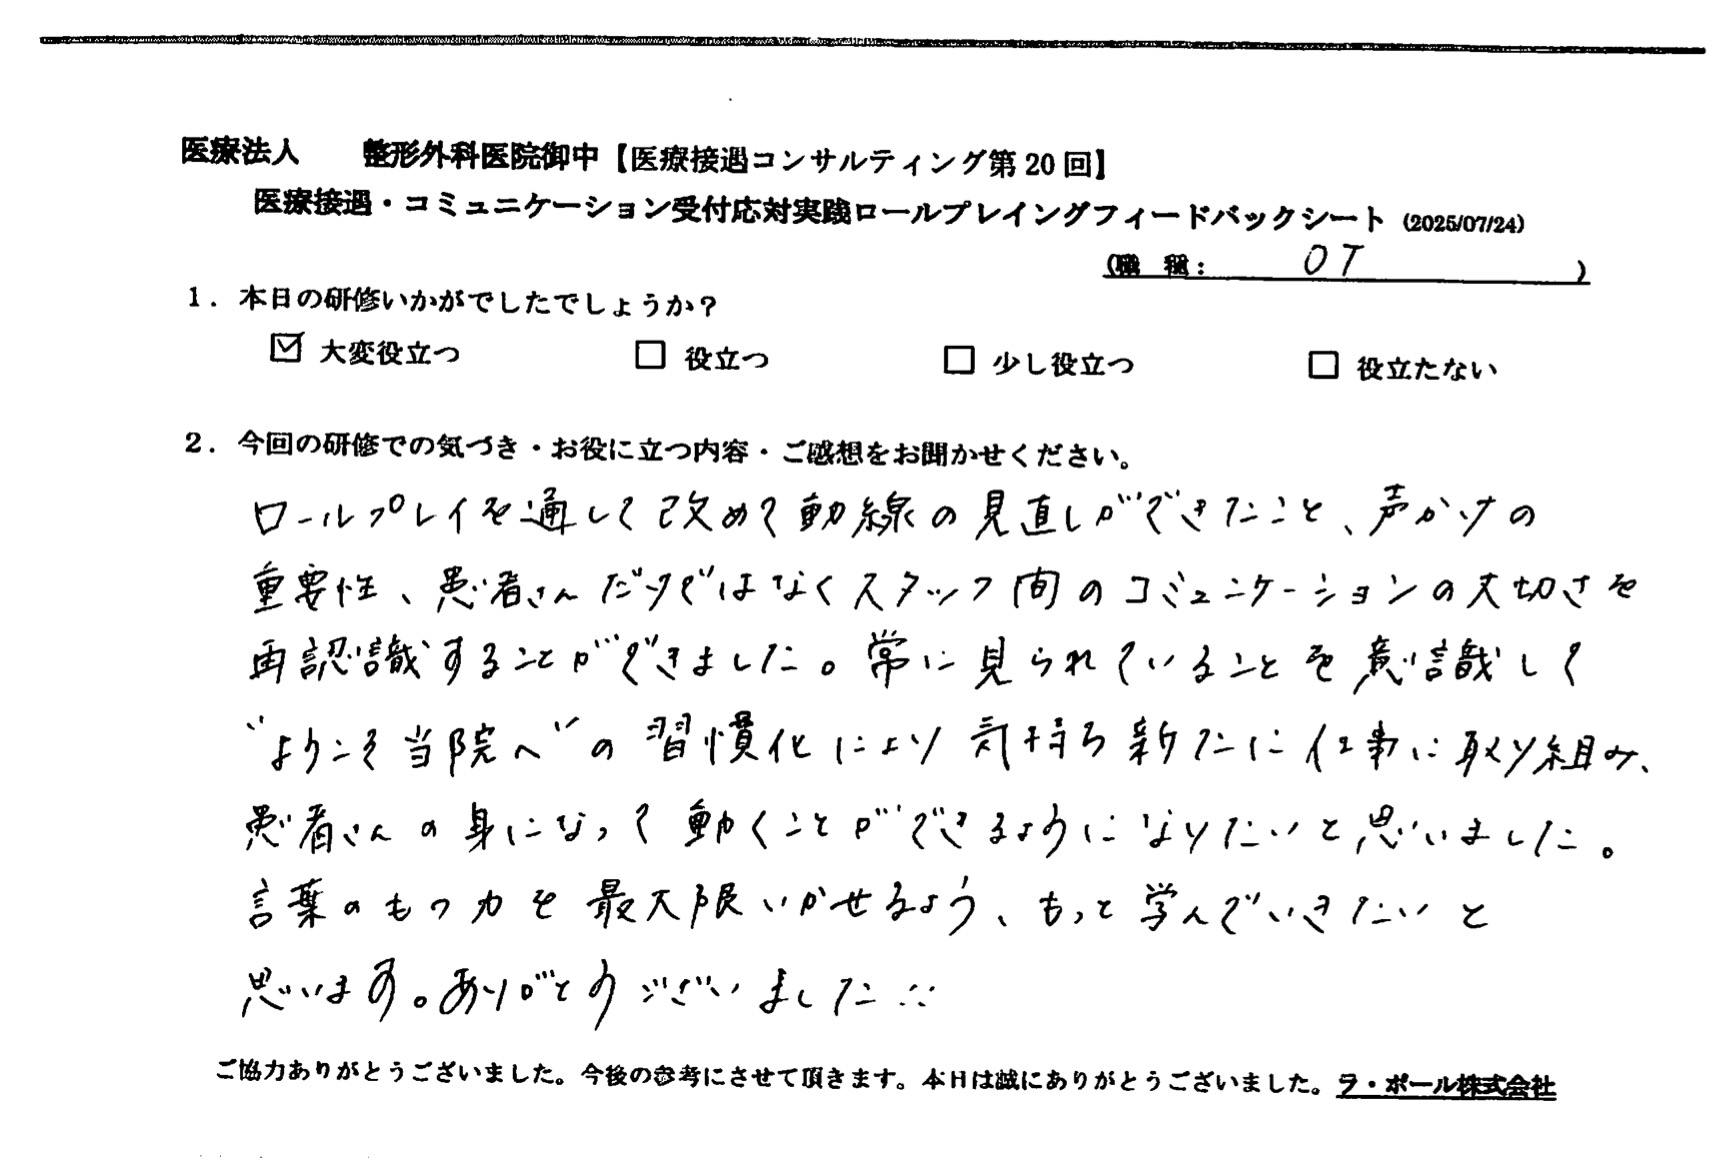 医療法人　　整形外科医院御中【医療接遇コンサルティング第20回】
医療接遇・コミュニケーション受付応対実践ロールプレイングフィードバックシート (2025/07/24)
(職　種：　OT　)
1．本日の研修いかがでしたでしょうか？
☑ 大変役立つ　□ 役立つ　□ 少し役立つ　□ 役立たない
2．今回の研修での気づき・お役に立つ内容・ご感想をお聞かせください。
ロールプレイを通して改めて動線の見直しができたこと、声かけの
重要性、患者さんだけではなくスタッフ間のコミュニケーションの大切さを
再認識することができました。常に見られていることを意識して
"ようこそ当院へ"の習慣化により気持ち新たに仕事に取り組み、
患者さんの身になって動くことができるようになりたいと思いました。
言葉のもつ力を最大限いかせるよう、もっと学んでいきたいと
思います。ありがとうございました∵
ご協力ありがとうございました。今後の参考にさせて頂きます。本日は誠にありがとうございました。ラ・ポール株式会社